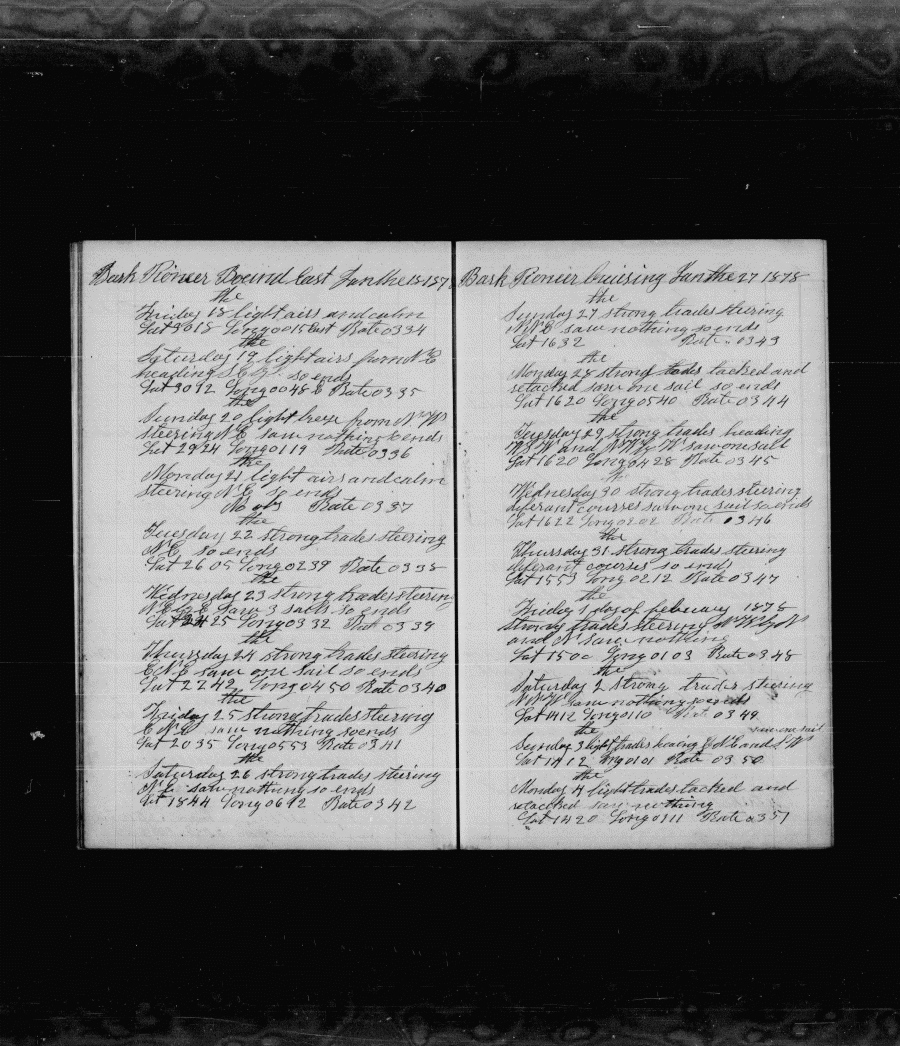 Bark Pioneer Bound East Jan the 18 187
the
Friday 18 light airs and calm
Lat 30 18 Long 00 15 East Rate 0334
the
Saturday 19 light airs from N E
heading so ends
Lat 30 12 Long 00 48 E Rate 0335
the
Sunday 20 light breze from N W
steering N E saw nothing ends
Lat 29 24 Long 01 19 Rate 0336
the
Monday 21 light airs and calm
steering N E so ends
No obs Rate 0337
the
Tuesday 22 strong trades steering
N E so ends
Lat 26 05 Long 02 39 Rate 0338
the
Wednesday 23 strong trades steering
N E by E Saw 3 sails so ends
Lat 24 25 Long 03 32 Rate 0339
the
Thursday 24 strong trades steering
E N E saw one sail so ends
Lat 22 42 Long 04 50 Rate 0340
the
Friday 25 strong trades steering
E N E saw nothing so ends
Lat 20 35 Long 05 53 Rate 0341
the
Saturday 26 strong trades steering
N E saw nothing so ends
Lat 18 44 Long 06 12 Rate 0342
Bark Pionier Cruising Jan the 27 1878
the
Sunday 27 strong trades steering
N N E saw nothing so ends
Lat 16 32 Rate 0343
the
Monday 28 strong trades tacked and
retacked saw one sail so ends
Lat 16 20 Long 05 40 Rate 0344
the
Tuesday 29 strong trades heading
W S W and N W by W saw one sail
Lat 16 20 Long 04 28 Rate 0345
the
Wednesday 30 strong trades steering
diferant courses saw one sail so ends
Lat 16 22 Long 02 02 Rate 0346
the
Thursday 31 strong trades steering
diferant courses so ends
Lat 15 53 Long 02 12 Rate 0347
the
Friday 1 day of febuary 1878
strong trades steering N W by N
and N saw nothing
Lat 15 00 Long 01 03 Rate 0348
the
Saturday 2 strong trades steering
N N W saw nothing so ends
Lat 14 12 Long 01 10 Rate 0349
the saw one sail
Sunday 3 light trades heading E N E and S W
Lat 14 12 Long 01 01 Rate 0350
the
Monday 4 light trades tacked and
retacked saw nothing
Lat 14 20 Long 01 11 Rate 0351